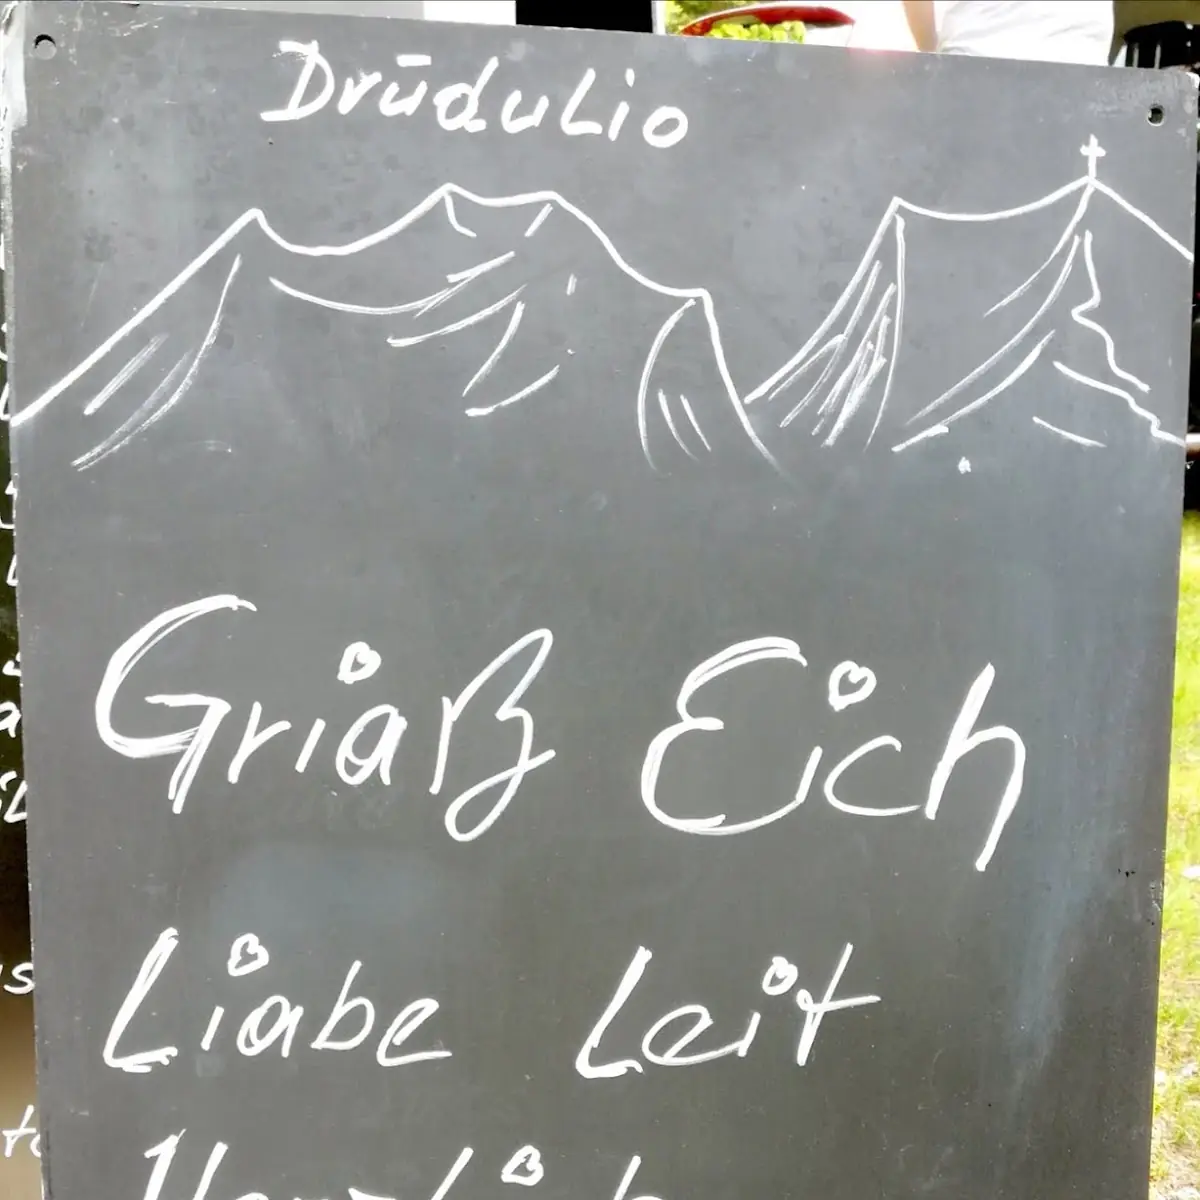 Drūduлio
Griaß Eich
Liabe Leit